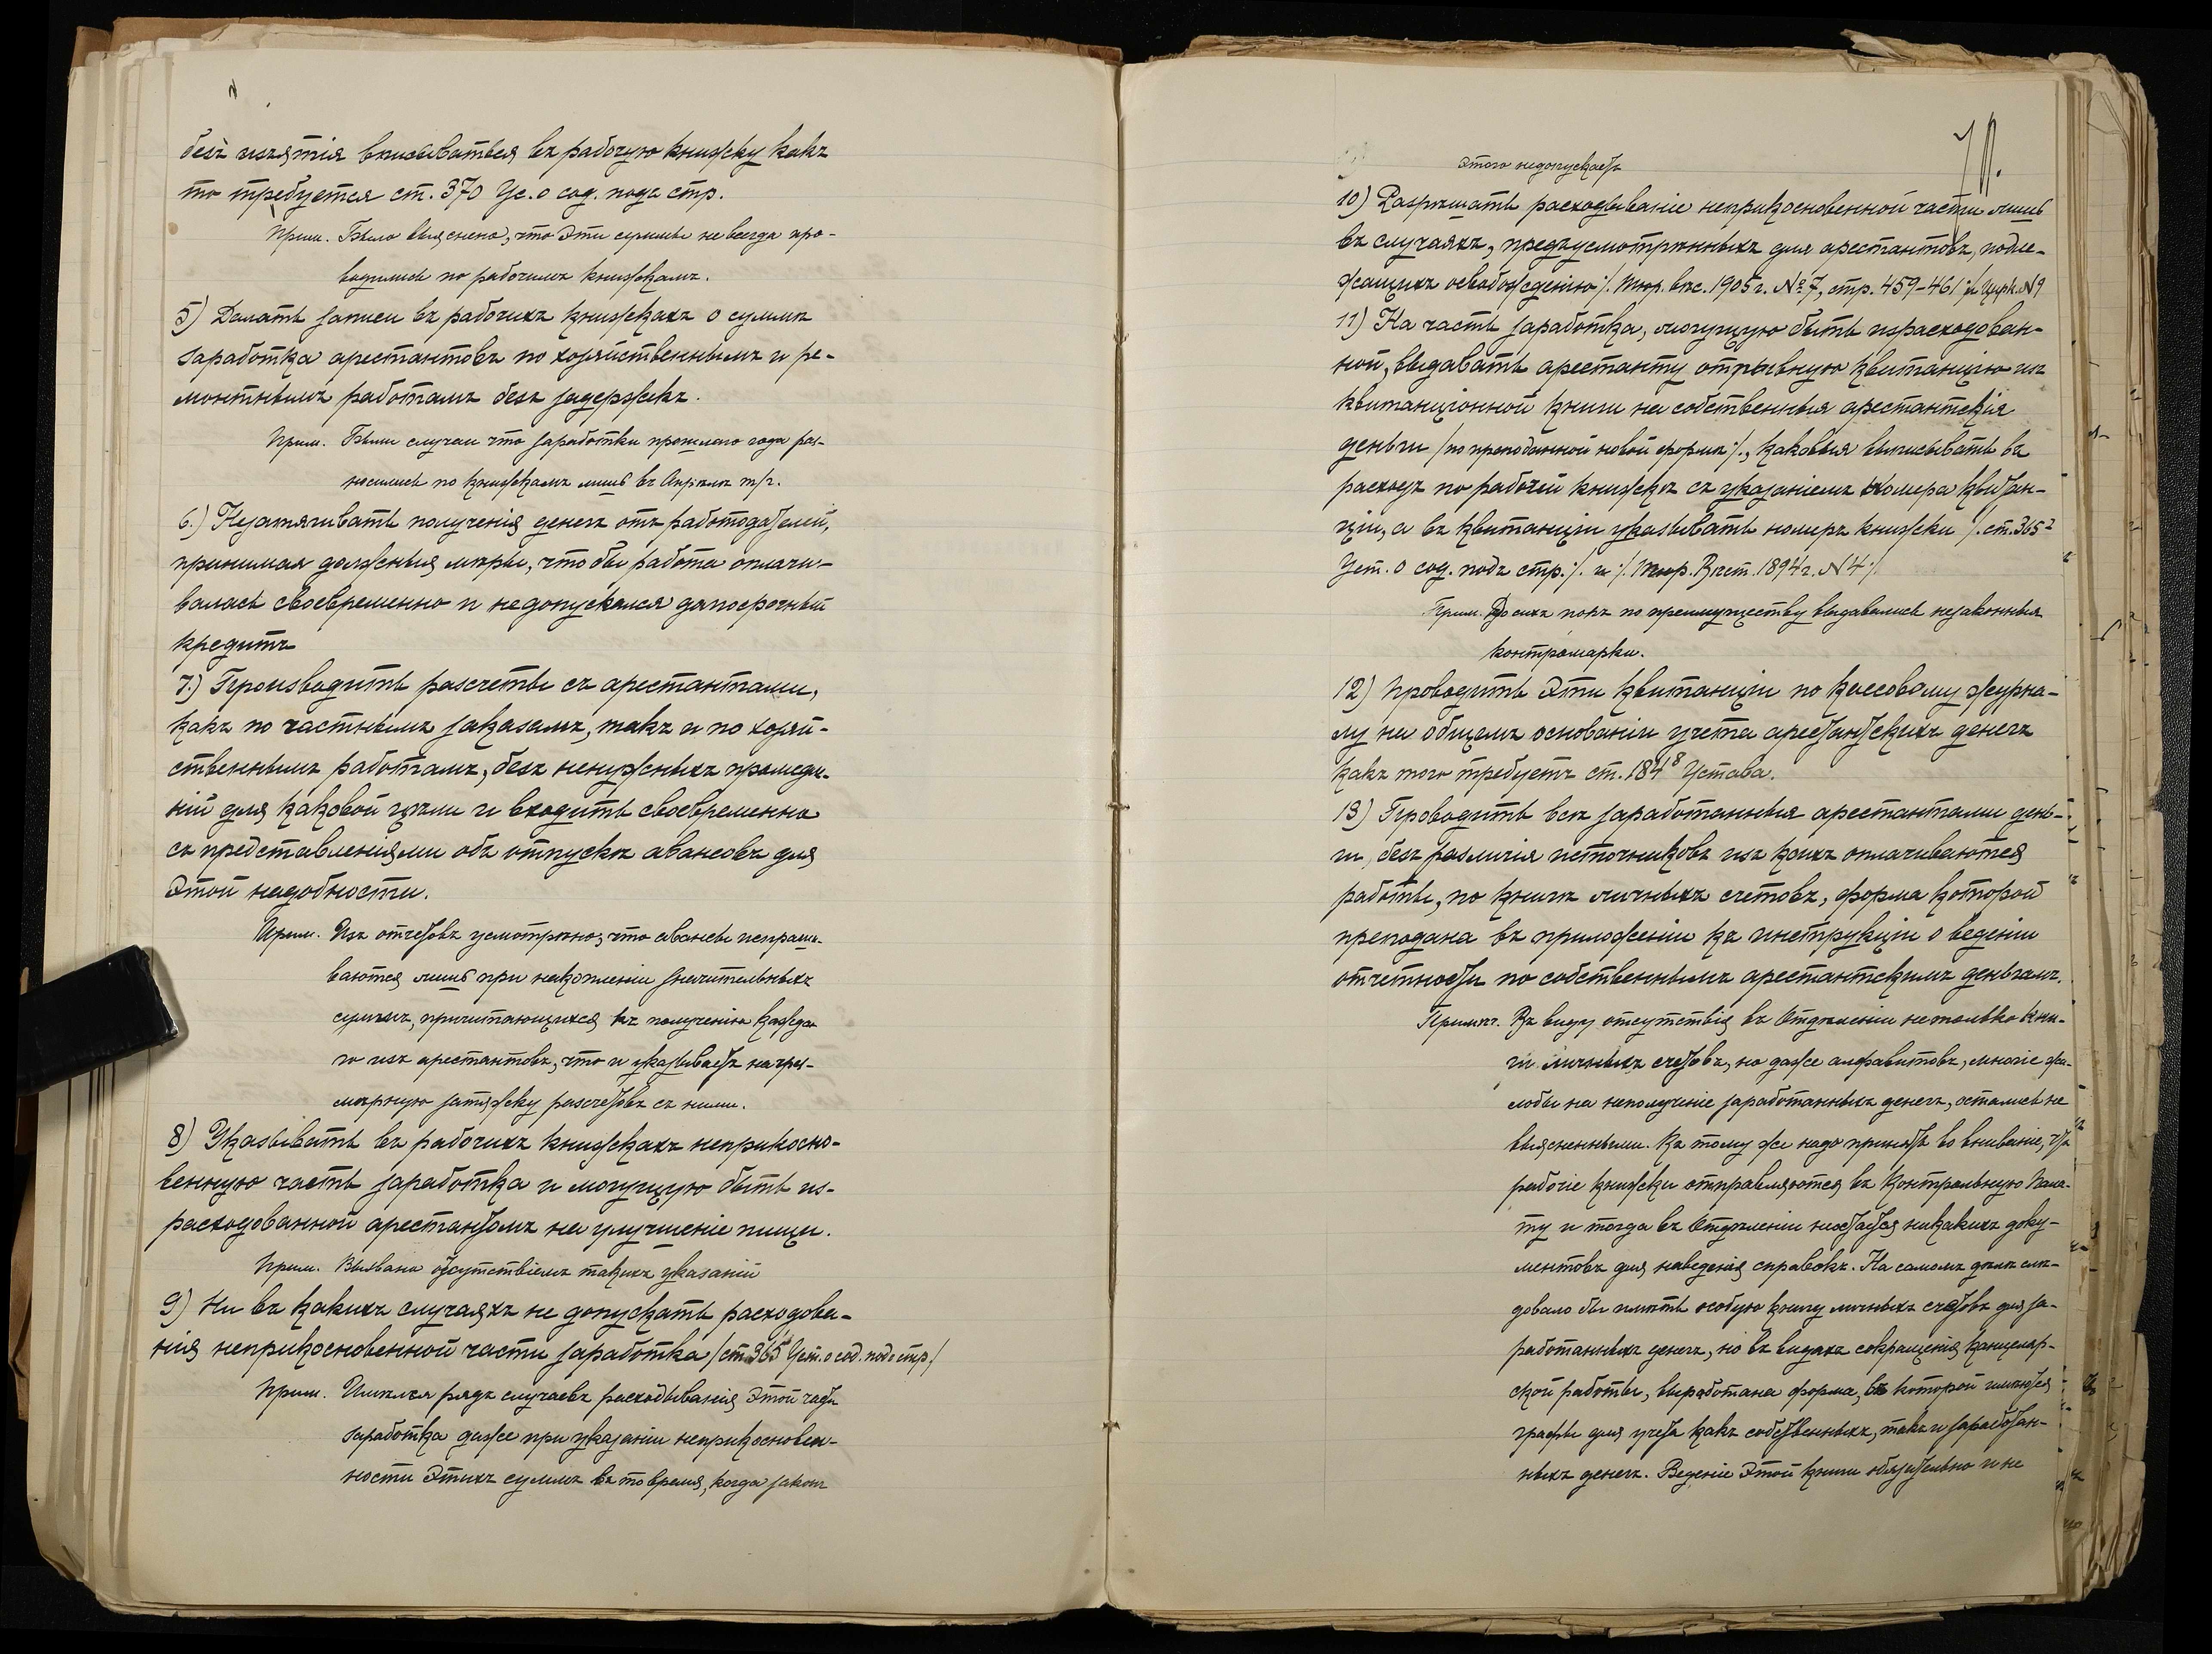 безъ изъятія вписываться въ рабочую книжку какъ
то требуется ст. 370 Ус. о сод. подъ стр.
Прим. Было выяснено, что эти суммы не всегда про-
водились по рабочимъ книжкамъ.
5) Дѣлать записи въ рабочихъ книжкахъ о суммѣ
заработка арестантовъ по хозяйственнымъ и ре-
монтнымъ работамъ безъ задержекъ.
Прим. Были случаи что заработки прошлаго года раз-
носились по книжкамъ лишь въ Апрѣлѣ т/г.
6.) Незатягивать полученія денегъ отъ работодателей,
принимая должныя мѣры, что бы работа оплачи-
валась своевременно и недопускался долгосрочный
кредитъ
7.) Производить расчеты съ арестантами,
какъ по частнымъ заказамъ, такъ и по хозяй-
ственнымъ работамъ, безъ ненужныхъ промедле-
ній для каковой цѣли и входить своевременно
съ представленіями объ отпускѣ авансовъ для
этой надобности.
Прим. Изъ отчетовъ усмотрѣно, что авансы испраши-
ваются лишь при накопленіи значительныхъ
суммъ, причитающихся къ полученію каждо-
го изъ арестантовъ, что и указываетъ на чрез-
мѣрную затяжку расчетовъ съ ними.
8) Указывать въ рабочихъ книжкахъ неприкосно-
венную часть заработка и могущую быть из-
расходованной арестантомъ на улучшеніе пищи.
Прим. Вызвано отсутствіемъ такихъ указаній
9) Ни въ какихъ случаяхъ не допускать расходова-
нія неприкосновенной части заработка /ст. 365 Уст. о сод. подъ стр./
Прим. Имѣлся рядъ случаевъ расходыванія этой части
заработка даже при указаніи неприкосновен-
ности этихъ суммъ въ то время, когда законъ
71.
этого недопускаетъ
10) Разрѣшать расходываніе неприкосновенной части лишь
въ случаяхъ, предусмотрѣнныхъ для арестантовъ, подле-
жащихъ освобожденію /. Тюр. вѣс. 1905 г. № 7, стр. 459-461 ./. и Цирк. № 9
11) На часть заработка, могущую быть израсходован-
ной, выдавать арестанту отрывную квитанцію изъ
квитанціонной книги на собственныя арестантскія
деньги /по преподанной новой формѣ/., каковыя выписывать въ
расходъ по рабочей книжкѣ съ указаніемъ номера квитан-
ціи, а въ квитанціи указывать номеръ книжки /. ст. 365²
Уст. о сод. подъ стр. /. и /. Тюр. Вѣст. 1894 г. № 4 /.
Прим. До сихъ поръ по преимуществу выдавались незаконныя
контромарки.
12) Проводить эти квитанціи по кассовому журна-
лу на общемъ основаніи учета арестантскихъ денегъ
какъ того требуетъ ст. 184⁸ Устава.
13) Проводить всѣ заработанныя арестантами день-
ги, безъ различія источниковъ изъ коихъ оплачиваются
работы, по книгѣ личныхъ счетовъ, форма которой
преподана въ приложеніи къ инструкціи о веденіи
отчетности по собственнымъ арестантскимъ деньгамъ.
Примѣч. Въ виду отсутствія въ Отдѣленіи не только кни-
ги личныхъ счетовъ, но даже алфавитовъ, многіе жа-
лобы на неполученіе заработанныхъ денегъ, остались не
выясненными. Къ тому же надо принять во вниманіе, что
рабочіе книжки отправляются въ Контрольную Пала-
ту и тогда въ Отдѣленіи неостается никакихъ доку-
ментовъ для наведенія справокъ. На самомъ дѣлѣ слѣ-
довало бы имѣть особую книгу личныхъ счетовъ для за-
работанныхъ денегъ, но въ видахъ сокращенія канцеляр-
ской работы, выработана форма, въ которой имѣются
графы для учета какъ собственныхъ, такъ и заработан-
ныхъ денегъ. Веденіе этой книги обязательно и не